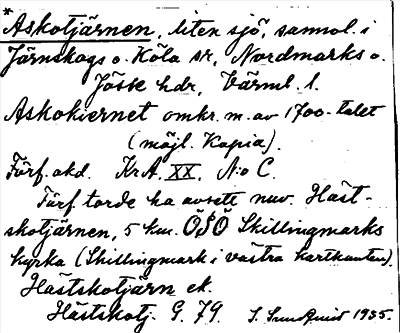 *
Askotjärnen, liten sjö, sannol. i
Järnskogs o. Köla sn, Nordmarks o.
Jösse hdr, Värml. l.
Askokiernet omkr. m. av 1700-talet
(möjl. Kopia).
Förf. okd. KrA. XX. N:o C.
Förf. torde ha avsett nuv. Häst-
skotjärnen, 5 km. ÖSÖ Skillingmarks
kyrka (Skillingmark i västra kartkanten).
Hästskotjärn ek.
Hästskotj. G. 79. S. Sundquist 1935.